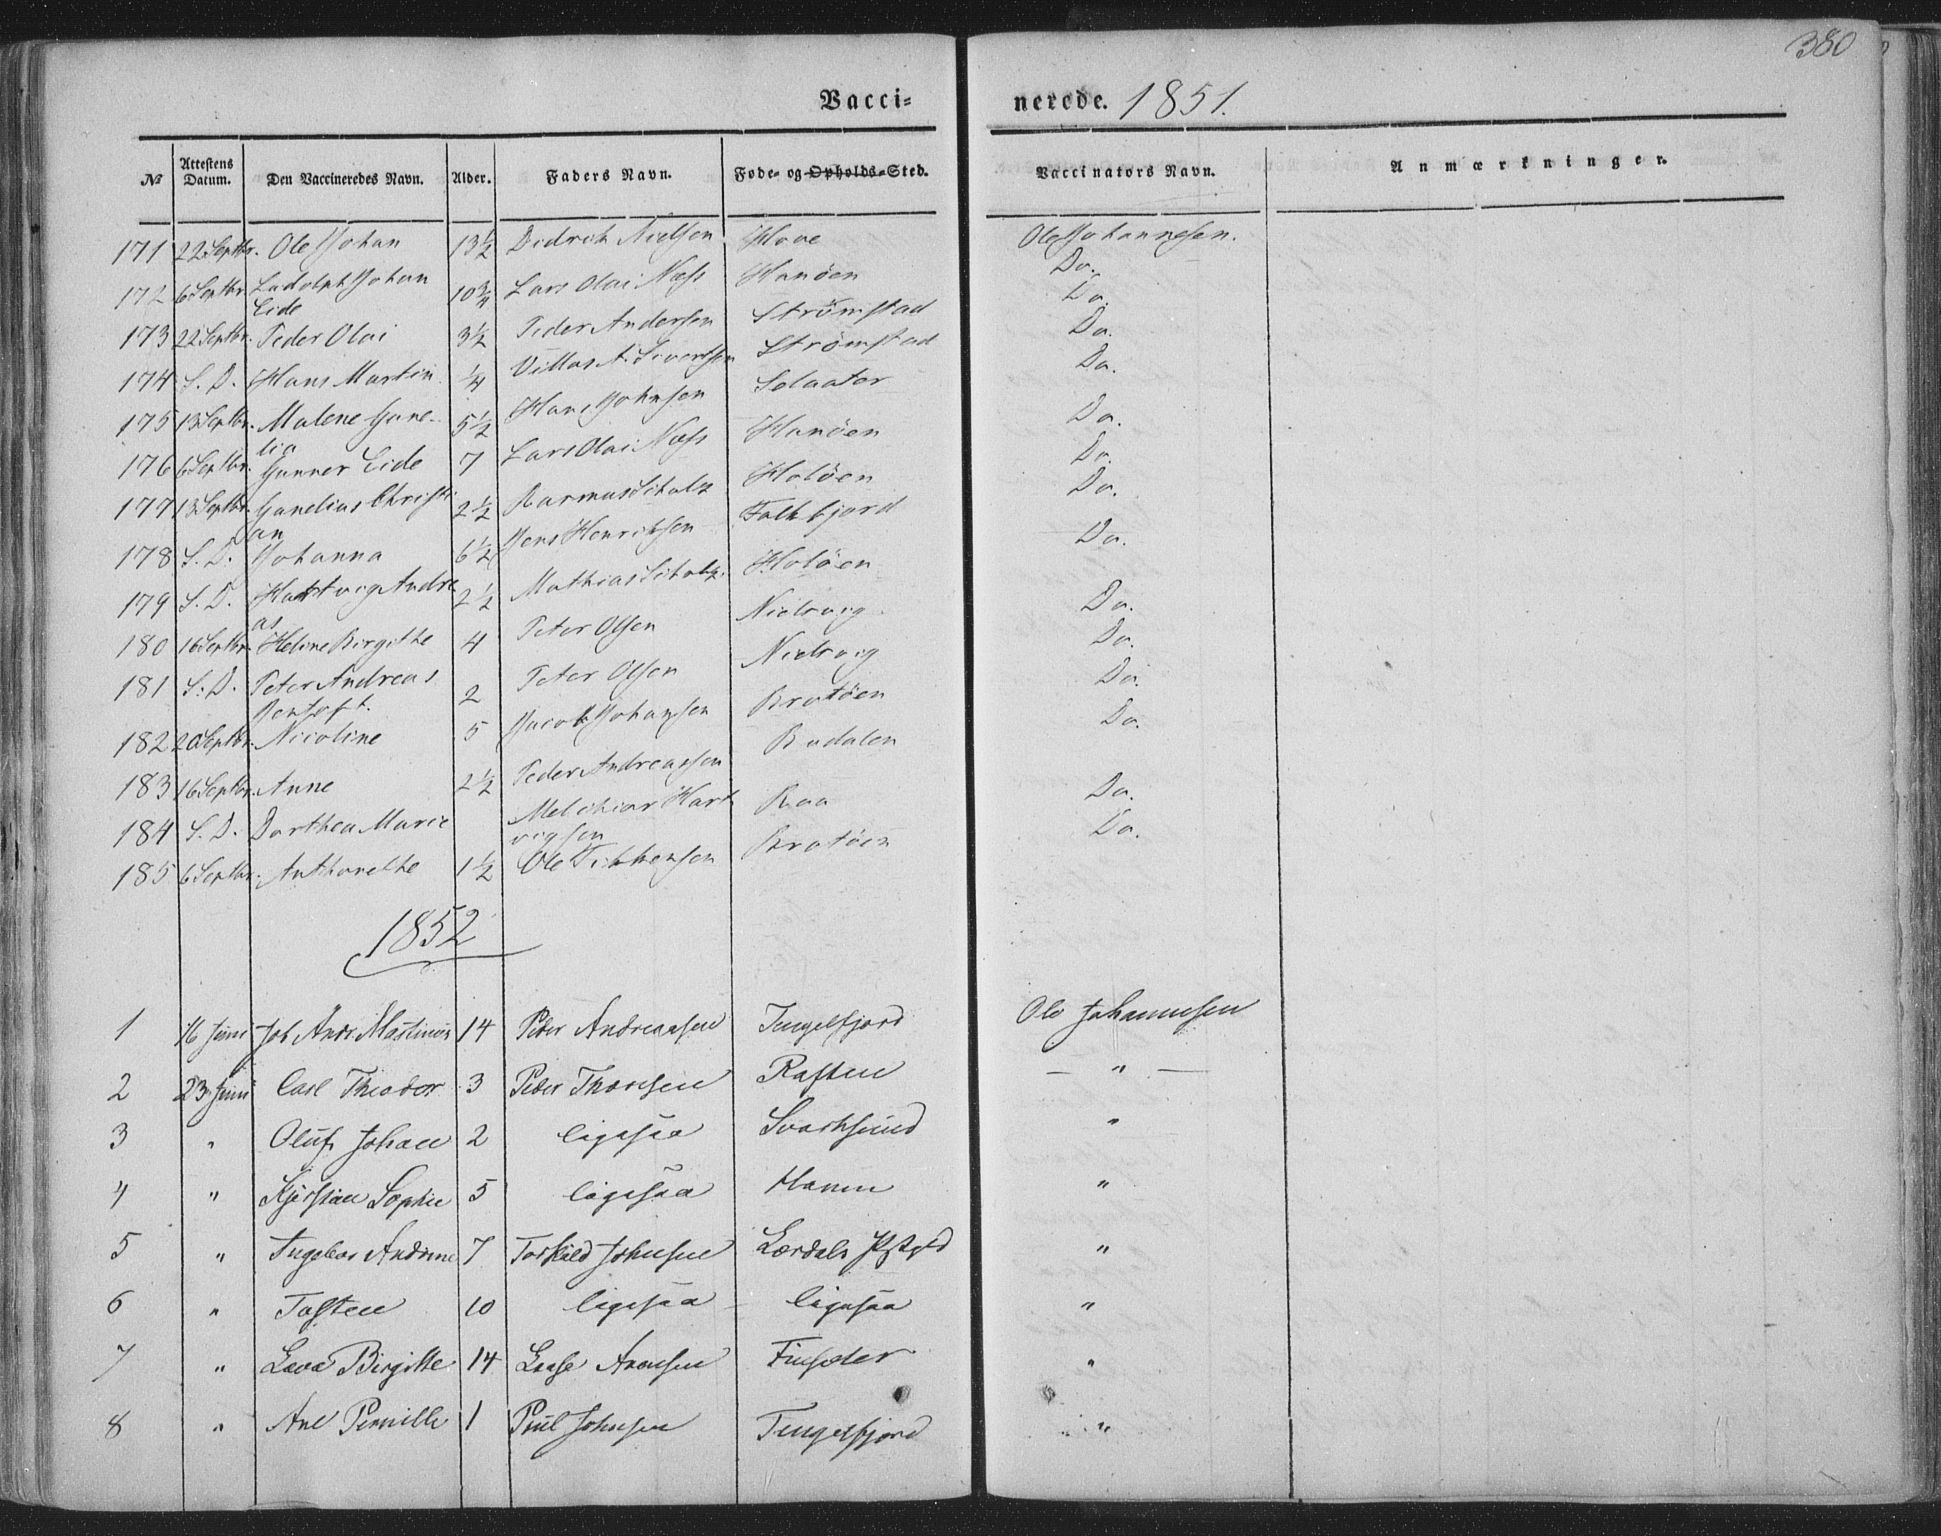 380
Vacci= nerede. 1851.
№ Attestens Datum. Den Vaccineredes Navn. Alder. Faders Navn. Føde- og Opholds-Sted. Vaccinators Navn. Anmærkninger.
171 22 Septbr. Ole Johan 13½ Didrich Nielsen Hove Ole Johannesen.
172 6 Septbr. Ludolph Johan 10¾ Lars Olai Næss Hanøen Do.
Eide
173 22 Septbr. Peder Olai 3½ Peder Andersen Strømstad Do.
174 S. D. Hans Martin ¼ Villas A. Sivertsen Strømstad Do.
175 13 Septbr. Malene Gune- 5½ Hans Johnsen Selaater Do.
lia
176 6 Septbr. Gunner Eide 7 Lars Olai Næss Hanøen Do.
177 13 Septbr. Gunelius Christi 2½ Rasmus Scholz Holøen Do.
an
178 S. D. Johanna 6½ Jens Henriksen Falkfjord Do.
179 S. D. Hartvig Andre 2½ Mathias Scholz. Holøen Do.
as
180 16 Septbr. Heline Birgithe 4 Peter Olsen Nielsvig Do.
181 S. D. Peter Andreas 2 Peter Olsen Nielsvig Do.
Bentoft.
182 20 Septbr. Nicoline 5 Jacob Johansen Brotøen Do.
183 16 Septbr. Anne 2½ Peder Andreassen Budalen Do.
184 S. D. Dorthea Marie Melchior Hart Raa Do.
vigsen
185 6 Septbr. Anthonethe 1½ Ole Tikkensen Brotøen Do.
1852
1 16 Juni Joh Andr Martinus 14 Peder Andreassen Tengelfjord Ole Johannesen
2 23 Juni Carl Theodor 3 Peder Thoresen Raften — " —
3 " Oluf Johan 2 ligesaa Svartsund "
4 " Kjerstian Sophie 5 ligesaa Hanøen "
5 " Ingebor Andrine 7 Torkild Johnsen Lærdals Pstgld "
6 " Tosten 10 ligesaa ligesaa "
7 " Lava Birgitte 14 Lasse Aronsen Finsæter "
8 " Ane Pernille 1 Poul Johnsen Tengelfjord "